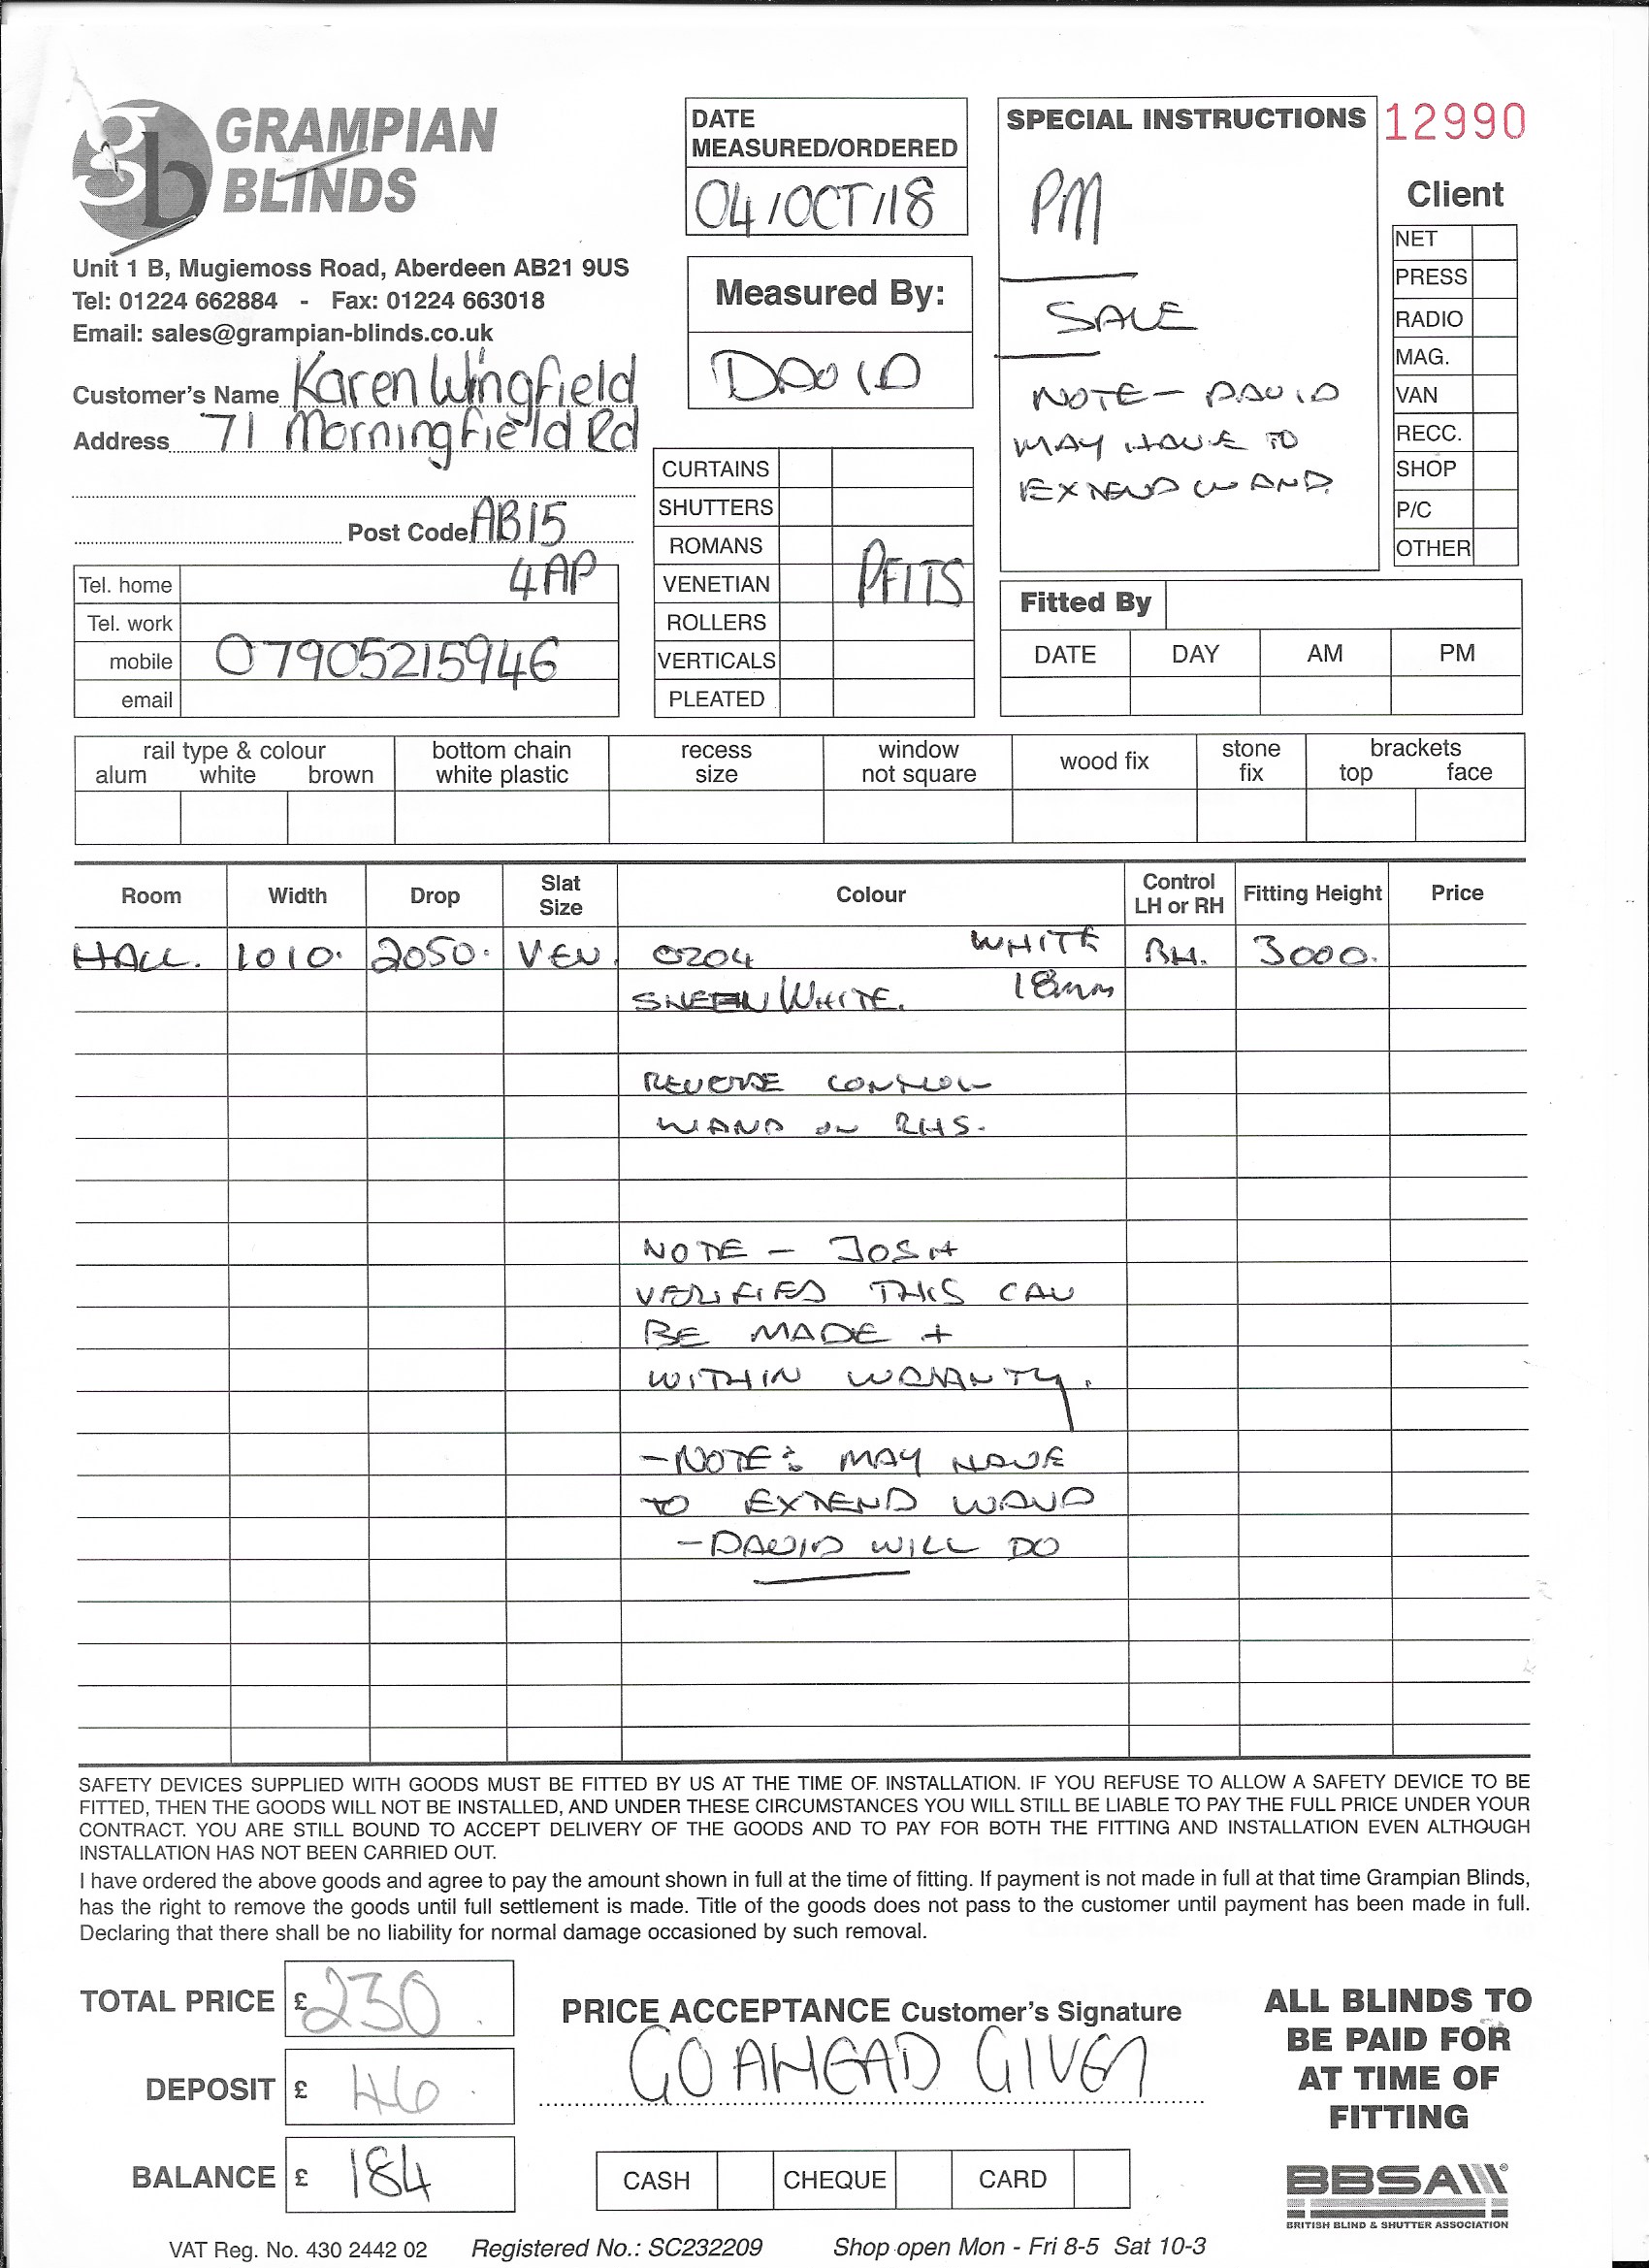 GRAMPIAN
BLINDS
Unit 1 B, Mugiemoss Road, Aberdeen AB21 9US
Tel: 01224 662884 - Fax: 01224 663018
Email: sales@grampian-blinds.co.uk
Customer's Name Karen Wingfield
Address 71 Morningfield Rd
Post Code AB15
4AP
Tel. home
Tel. work
mobile 07905215946
email
DATE
MEASURED/ORDERED
04/OCT/18
Measured By:
DAVID
CURTAINS
SHUTTERS
ROMANS
VENETIAN PFITS
ROLLERS
VERTICALS
PLEATED
SPECIAL INSTRUCTIONS
PM
SALE
NOTE - DAVID
MAY HAVE TO
EXTEND WAND
12990
Client
NET
PRESS
RADIO
MAG.
VAN
RECC.
SHOP
P/C
OTHER
Fitted By
DATE DAY AM PM
rail type & colour bottom chain recess window wood fix stone brackets
alum white brown white plastic size not square fix top face
Room Width Drop Slat Size Colour Control LH or RH Fitting Height Price
HALL. 1010. 2050. VEN. 0204 WHITE RH. 3000.
SHEEN WHITE. 18mm
REVERSE CONTROL
WAND ON RHS.
NOTE - JOSH
VERIFIED THIS CAN
BE MADE +
WITHIN WARANTY.
- NOTE: MAY HAVE
TO EXTEND WAND
- DAVID WILL DO
SAFETY DEVICES SUPPLIED WITH GOODS MUST BE FITTED BY US AT THE TIME OF INSTALLATION. IF YOU REFUSE TO ALLOW A SAFETY DEVICE TO BE
FITTED, THEN THE GOODS WILL NOT BE INSTALLED, AND UNDER THESE CIRCUMSTANCES YOU WILL STILL BE LIABLE TO PAY THE FULL PRICE UNDER YOUR
CONTRACT. YOU ARE STILL BOUND TO ACCEPT DELIVERY OF THE GOODS AND TO PAY FOR BOTH THE FITTING AND INSTALLATION EVEN ALTHOUGH
INSTALLATION HAS NOT BEEN CARRIED OUT.
I have ordered the above goods and agree to pay the amount shown in full at the time of fitting. If payment is not made in full at that time Grampian Blinds,
has the right to remove the goods until full settlement is made. Title of the goods does not pass to the customer until payment has been made in full.
Declaring that there shall be no liability for normal damage occasioned by such removal.
TOTAL PRICE £ 230
DEPOSIT £ 46
BALANCE £ 184
PRICE ACCEPTANCE Customer's Signature
GO AHEAD GIVEN
CASH CHEQUE CARD
ALL BLINDS TO
BE PAID FOR
AT TIME OF
FITTING
BBSA
BRITISH BLIND & SHUTTER ASSOCIATION
VAT Reg. No. 430 2442 02 Registered No.: SC232209 Shop open Mon - Fri 8-5 Sat 10-3